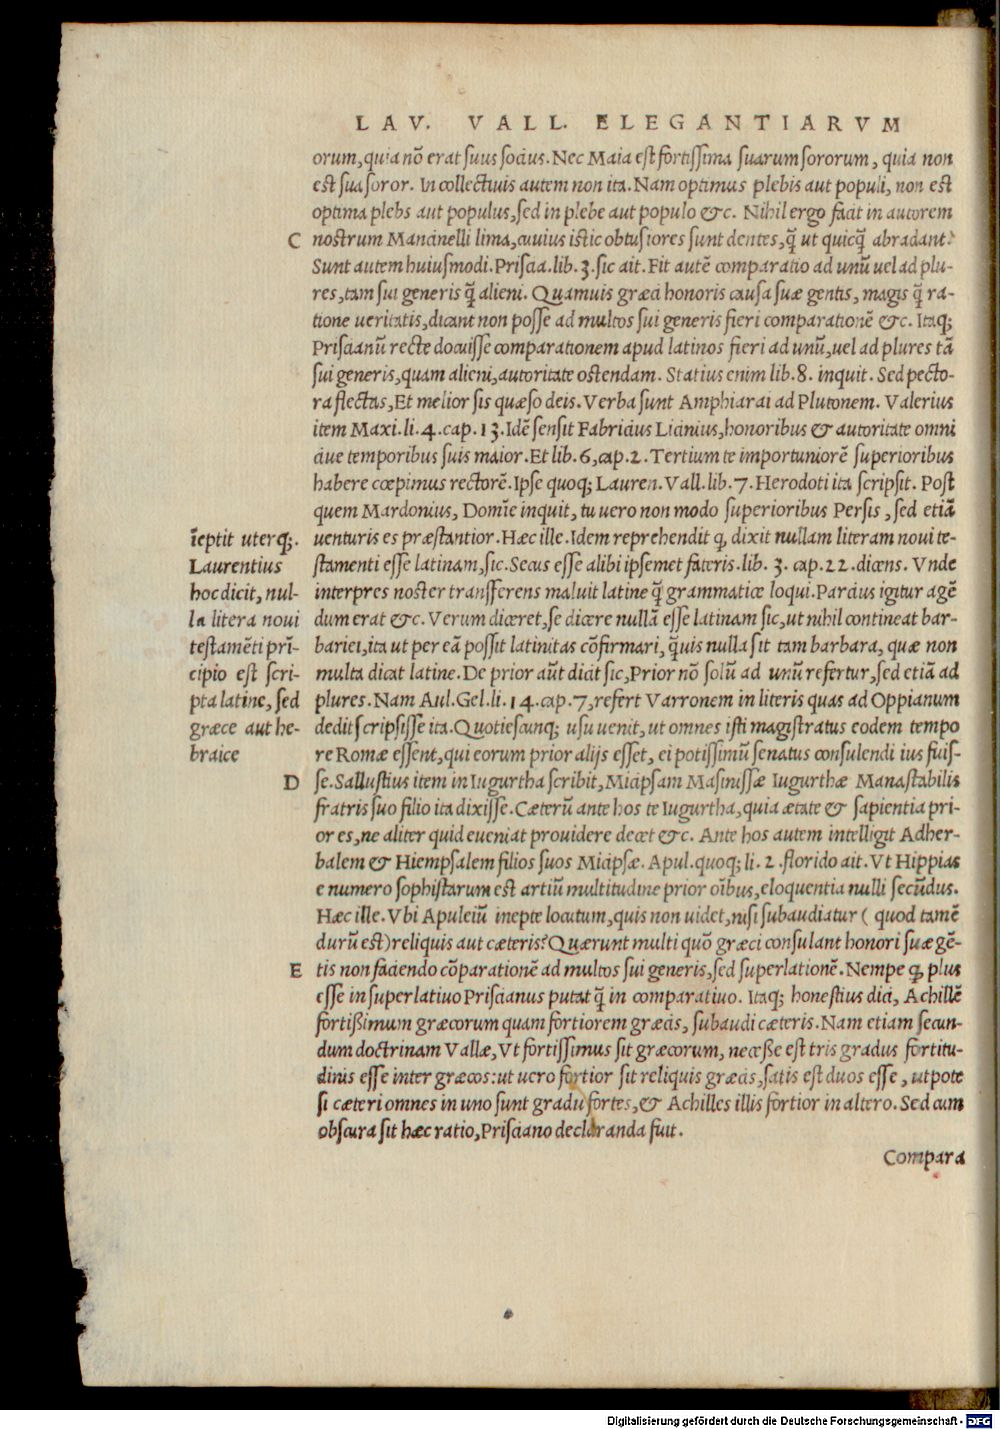 LAV. VALL. ELEGANTIARVM
orum, quia nõ erat suus socius. Nec Maia est fortissima suarum sororum, quia non
est sua soror. In collectiuis autem non ita. Nam optimus plebis aut populi, non est
optima plebs aut populus, sed in plebe aut populo &c. Nihil ergo facit in autorem
C nostrum Mancinelli lima, cuuius istic obtusiores sunt dentes, q̃ ut quicq̃ abradant?
Sunt autem huiusmodi. Priscia. lib. 3. sic ait. Fit autẽ comparatio ad unũ uel ad plu-
res, tam sui generis q̃ alieni. Quamuis græci honoris causa suæ gentis, magis q̃ ra-
tione ueritatis, dicant non posse ad multos sui generis fieri comparationẽ &c. Itaq;
Priscianũ recte docuisse comparationem apud latinos fieri ad unũ, uel ad plures tã
sui generis, quam alieni, autoritate ostendam. Statius enim lib. 8. inquit. Sed pecto-
ra flectas, Et melior sis quæso deis. Verba sunt Amphiarai ad Plutonem. Valerius
item Maxi. li. 4. cap. 13. Idẽ sensit Fabricius Licinius, honoribus & autoritate omni
ciue temporibus suis maior. Et lib. 6, cap. 2. Tertium te importuniorẽ superioribus
habere cœpimus rectorẽ. Ipse quoq; Lauren. Vall. lib. 7. Herodoti ita scripsit. Post
quem Mardonius, Domĩe inquit, tu uero non modo superioribus Persis, sed etiã
uenturis es præstantior. Hæc ille. Idem reprehendit ꝙ dixit nullam literam noui te-
stamenti esse latinam, sic. Secus esse alibi ipsemet fateris. lib. 3. cap. 22. dicens. Vnde
interpres noster transferens maluit latine q̃ grammatice loqui. Parcius igitur agẽ
dum erat &c. Verum diceret, se dicere nullã esse latinam sic, ut nihil contineat bar-
bariei, ita ut per eã possit latinitas cõfirmari, q̃uis nulla sit tam barbara, quæ non
multa dicat latine. De prior aũt dicit sic, Prior nõ solũ ad unũ refertur, sed etiã ad
plures. Nam Aul. Gel. li. 14. cap. 7, refert Varronem in literis quas ad Oppianum
dedit scripsisse ita. Quotiescunq; usu uenit, ut omnes isti magistratus eodem tempo
re Romæ essent, qui eorum prior alijs esset, ei potissimũ senatus consulendi ius fuis-
D se. Sallustius item in Iugurtha scribit, Micipsam Masinissæ Iugurthæ Manastabilis
fratris suo filio ita dixisse. Cæterũ ante hos te Iugurtha, quia ætate & sapientia pri-
or es, ne aliter quid eueniat prouidere decet &c. Ante hos autem intelligit Adher-
balem & Hiempsalem filios suos Micipsæ. Apul. quoq; li. 2. florido ait. Vt Hippias
e numero sophistarum est artiũ multitudine prior oĩbus, eloquentia nulli secũdus.
Hæc ille. Vbi Apuleiũ inepte locutum, quis non uidet, nisi subaudiatur (quod tamẽ
durũ est) reliquis aut cæteris? Quærunt multi quõ græci consulant honori suæ gẽ-
E tis non faciendo cõparationẽ ad multos sui generis, sed superlationẽ. Nempe ꝙ plus
esse in superlatiuo Priscianus putat q̃ in comparatiuo. Itaq; honestius dici, Achillẽ
fortißimum græcorum quam fortiorem græcis, subaudi cæteris. Nam etiam secun-
dum doctrinam Vallæ, Vt fortissimus sit græcorum, neceße est tris gradus fortitu-
dinis esse inter græcos: ut uero fortior sit reliquis græcis, satis est duos esse, utpote
si cæteri omnes in uno sunt gradu fortes, & Achilles illis fortior in altero. Sed cum
obscura sit hæc ratio, Prisciano declaranda fuit.
Compara
ĩeptit uterq;.
Laurentius
hoc dicit, nul-
la litera noui
testamẽti prĩ-
cipio est scri-
pta latine, sed
græce aut he-
braice
Digitalisierung gefördert durch die Deutsche Forschungsgemeinschaft - DFG